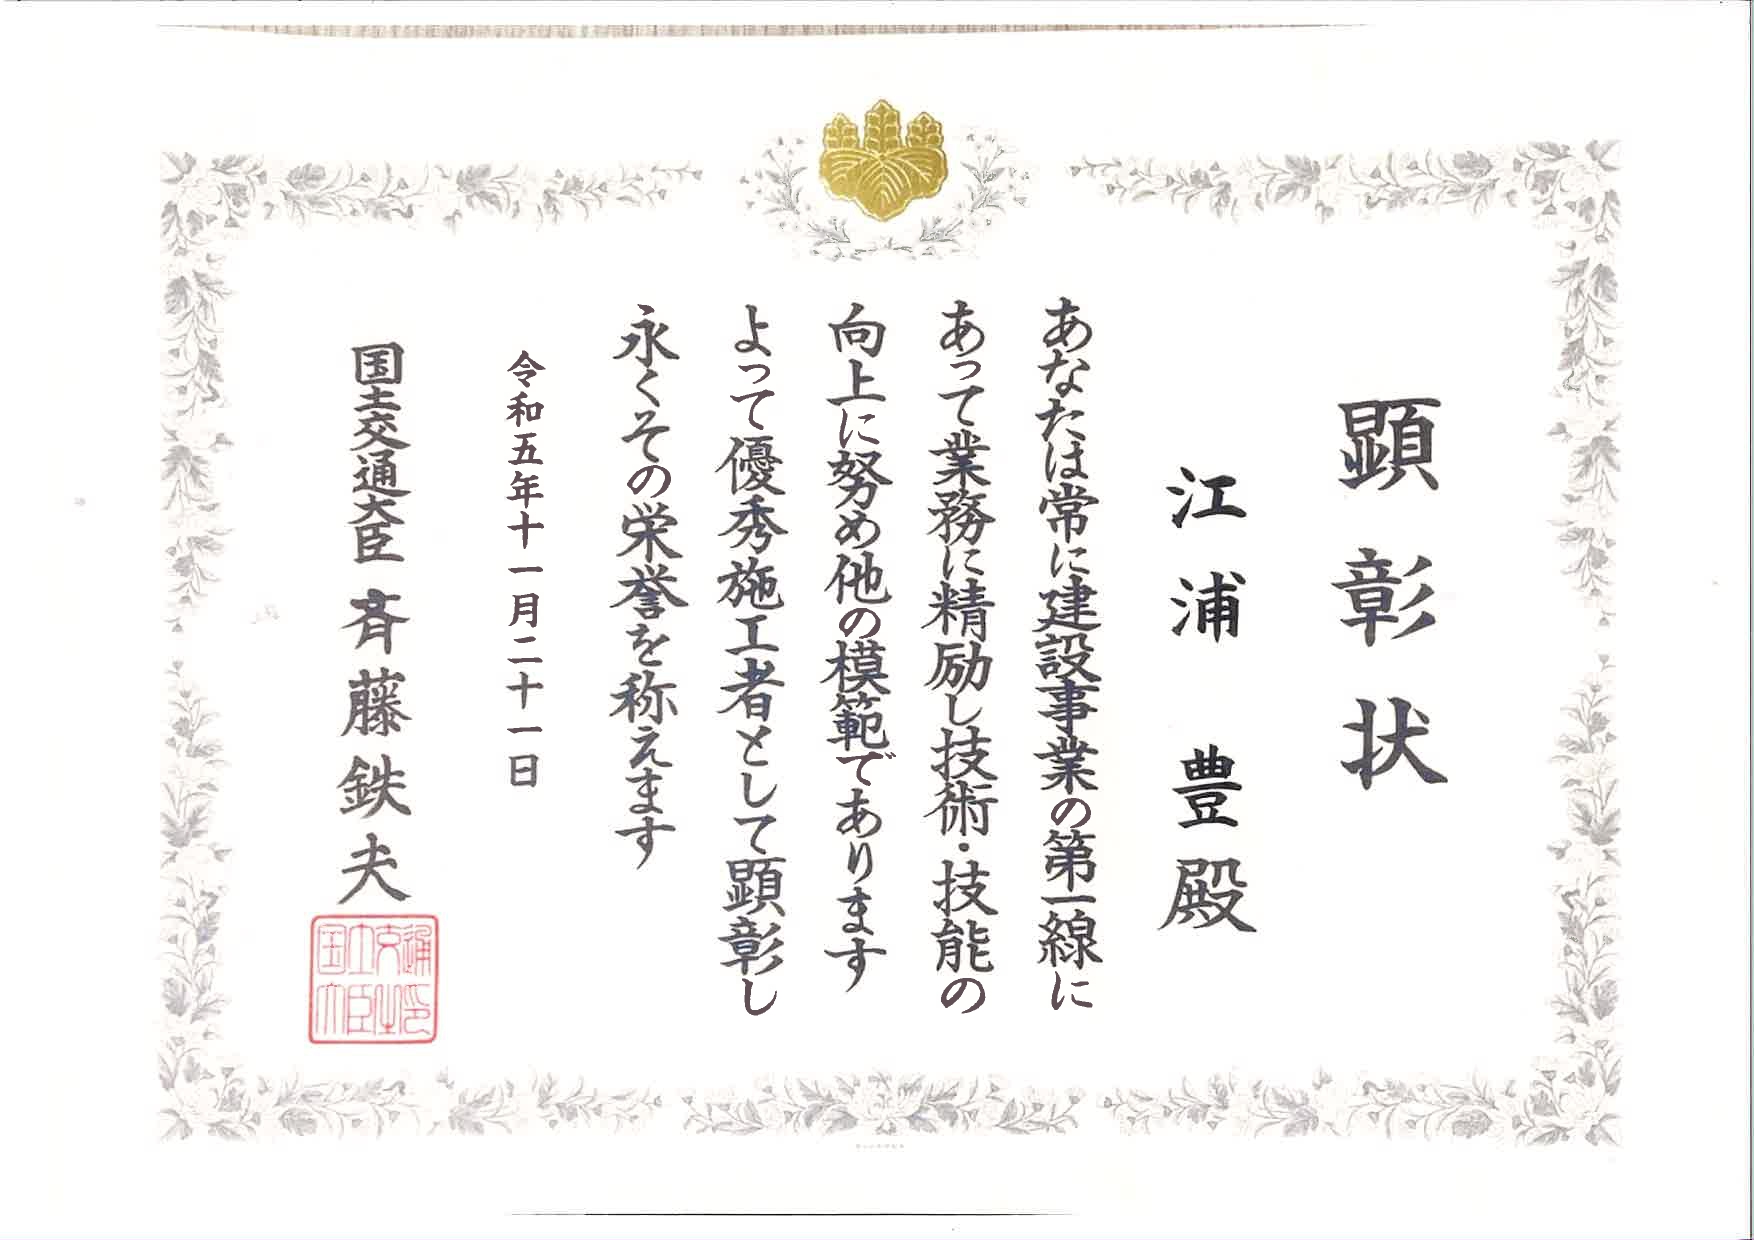 顕彰状
江浦 豊殿
あなたは常に建設事業の第一線に
あって業務に精励し技術・技能の
向上に努め他の模範であります
よって優秀施工者として顕彰し
永くその栄誉を称えます
令和五年十一月二十一日
国土交通大臣 斉藤鉄夫
国土交通大臣之印